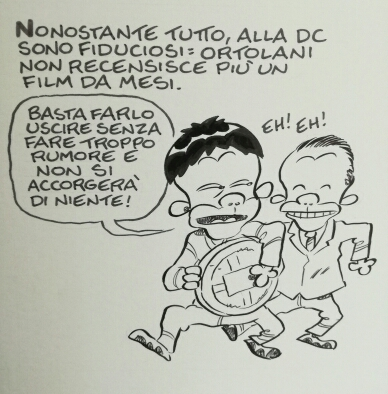 NONOSTANTE TUTTO, ALLA DC
SONO FIDUCIOSI: ORTOLANI
NON RECENSISCE PIÙ UN
FILM DA MESI.
BASTA FARLO
USCIRE SENZA
FARE TROPPO
RUMORE E
NON SI
ACCORGERÀ
DI NIENTE!
EH! EH!